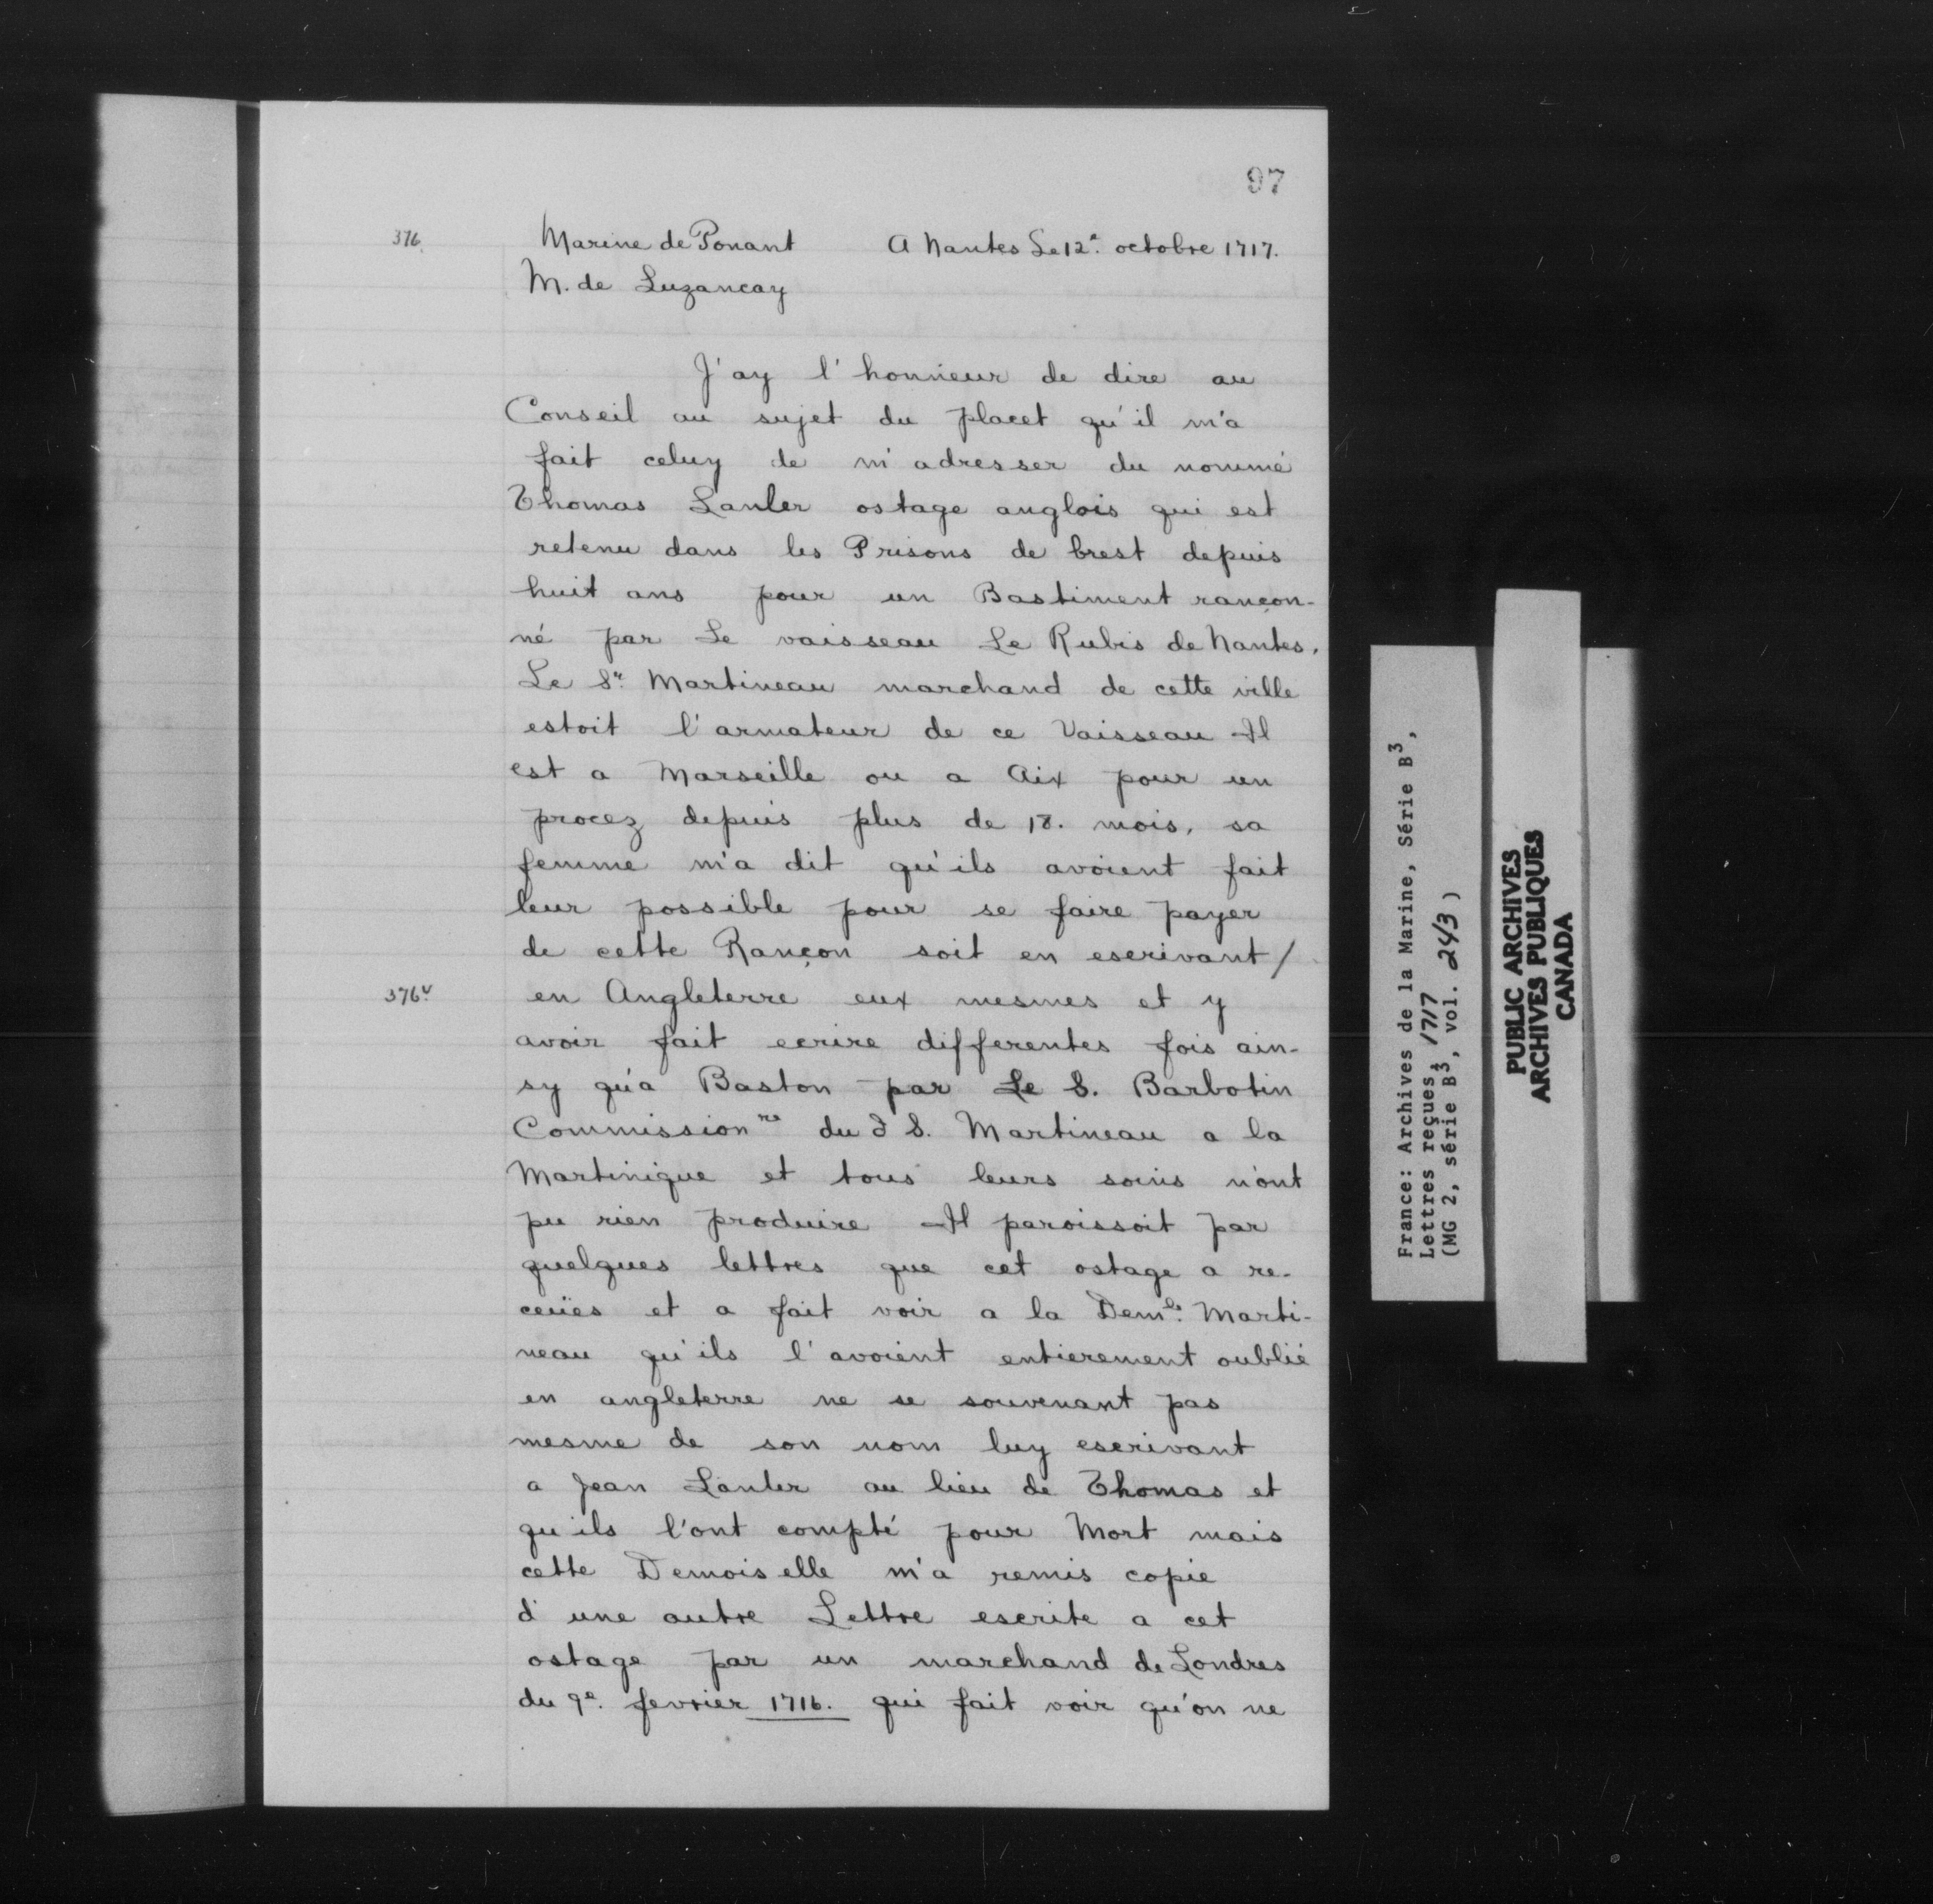 97
376. Marine de Ponant A Nantes Le 12e. octobre 1717.
M. de Luzancay
J'ay l'honneur de dire au
Conseil au sujet du placet qu'il m'a
fait celuy de m'adresser du nommé
Thomas Lanler ostage anglois qui est
retenu dans les Prisons de brest depuis
huit ans pour un Bastiment rançon-
né par Le vaisseau Le Rubis de Nantes.
Le Sr. Martineau marchand de cette ville
estoit l'armateur de ce Vaisseau Il
est a Marseille ou a Aix pour un
procez depuis plus de 18. mois, sa
femme m'a dit qu'ils avoient fait
leur possible pour se faire payer
de cette Rançon soit en escrivant/
376v en Angleterre eux mesmes et y
avoir fait ecrire differentes fois ain-
sy qu'a Baston par Le S. Barbotin
Commissionre du d S. Martineau a la
Martinique et tous leurs soins n'ont
pu rien produire Il paroissoit par
quelques lettres que cet ostage a re-
ceües et a fait voir a la Demle. Marti-
neau qu'ils l'avoient entierement oublié
en angleterre ne se souvenant pas
mesme de son nom luy escrivant
a Jean Lanler au lieu de Thomas et
qu'ils l'ont compté pour Mort mais
cette Demoiselle m'a remis copie
d'une autre Lettre escrite a cet
ostage par un marchand de Londres
du 9e. fevrier 1716. qui fait voir qu'on ne
France: Archives de la Marine, Série B3,
Lettres reçues, 1717
(MG 2, série B3, vol. 243)
PUBLIC ARCHIVES
ARCHIVES PUBLIQUES
CANADA